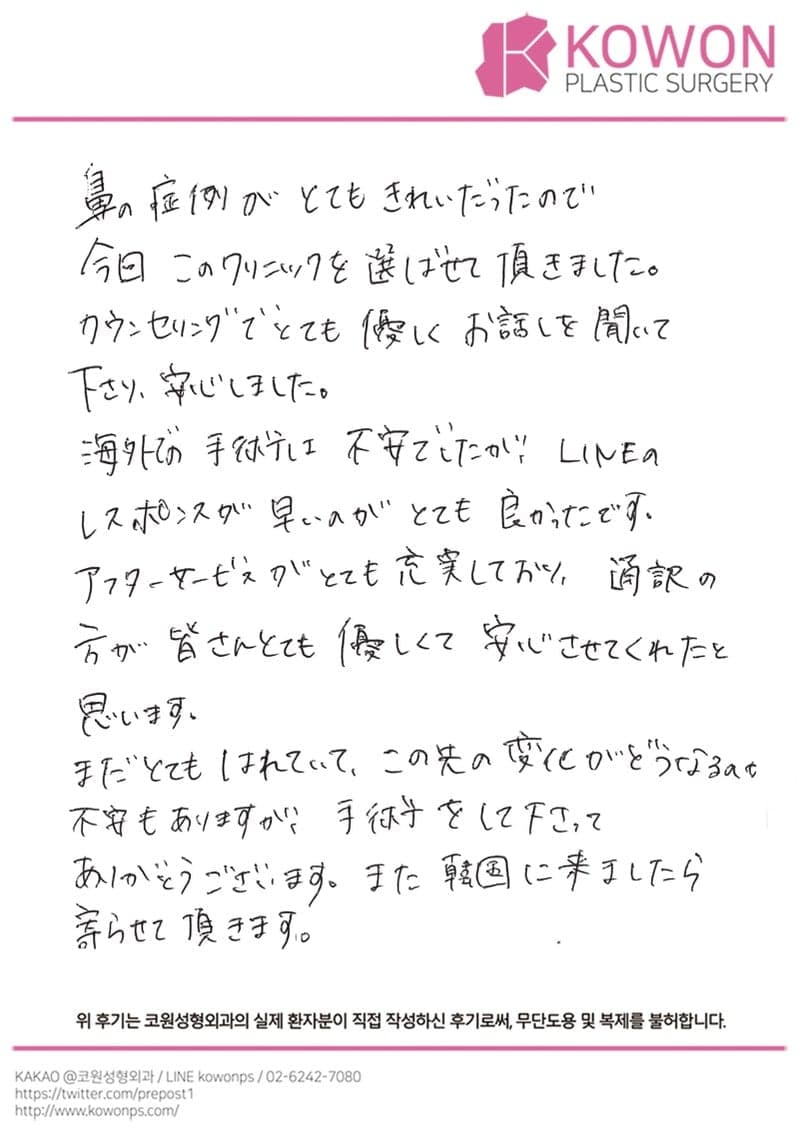 KOWON
PLASTIC SURGERY
鼻の症例がとてもきれいだったので
今回このクリニックを選ばせて頂きました。
カウンセリングでとても優しくお話しを聞いて
下さり、安心しました。
海外での手術は不安でしたが、LINEの
レスポンスが早いのがとても良かったです。
アフターサービスがとても充実しており、通訳の
方が皆さんとても優しくて安心させてくれたと
思います。
まだとてもはれていて、この先の変化がどうなるのも
不安もありますが、手術をして下さって
ありがとうございます。また韓国に来ましたら
寄らせて頂きます。
위 후기는 코원성형외과의 실제 환자분이 직접 작성하신 후기로써, 무단도용 및 복제를 불허합니다.
KAKAO @코원성형외과 / LINE kowonps / 02-6242-7080
https://twitter.com/prepost1
http://www.kowonps.com/